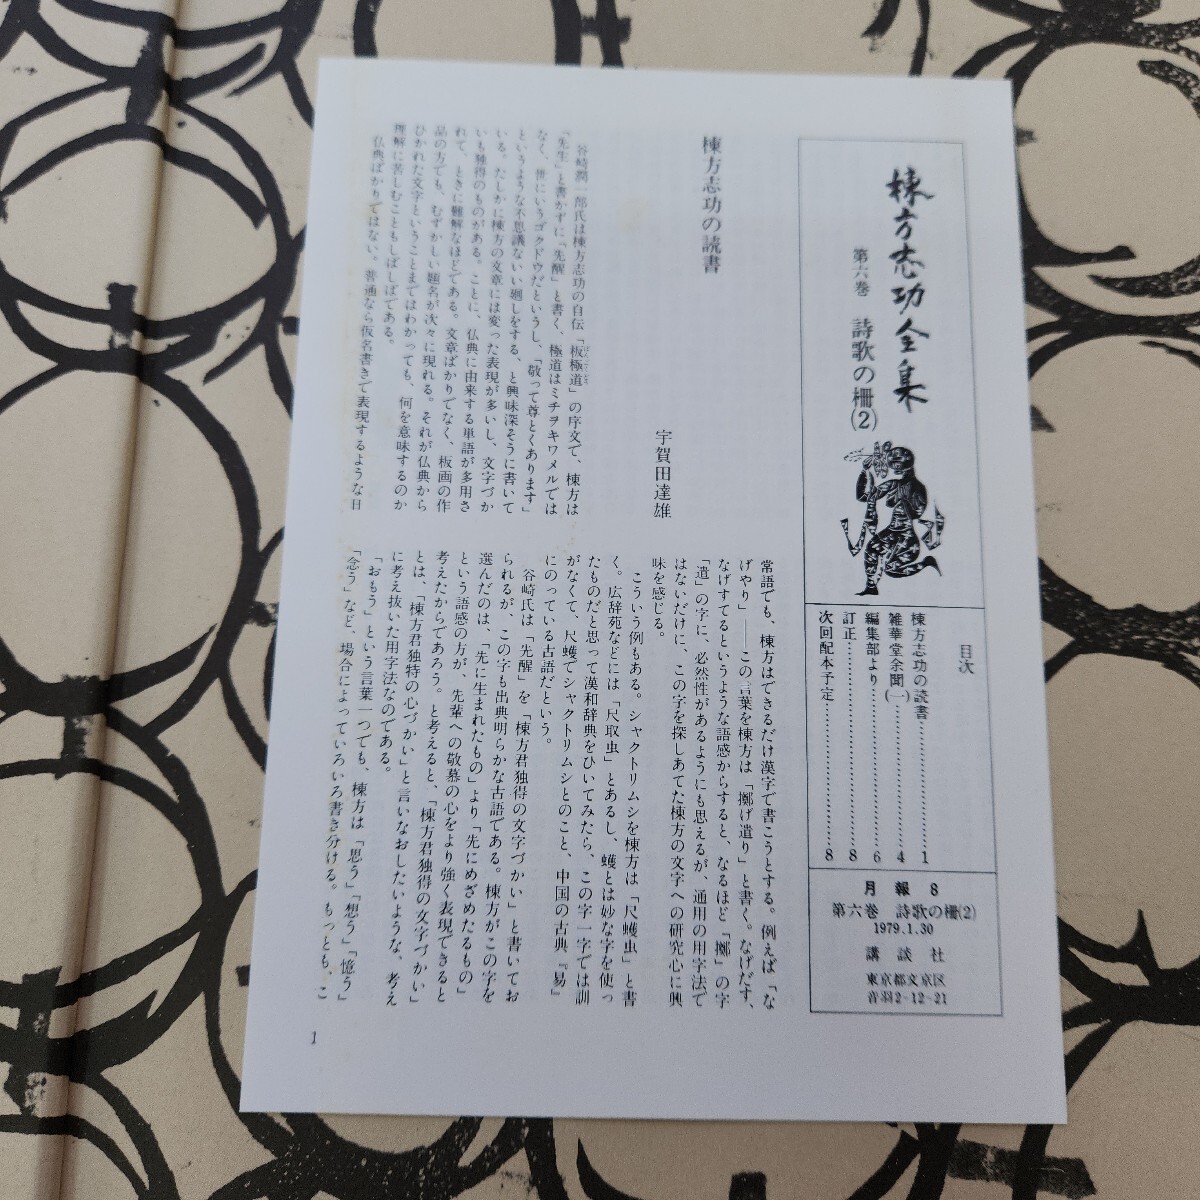 棟方志功全集
第六巻　詩歌の柵(2)
目次
棟方志功の読書……………………1
雑華堂余聞(一)……………………4
編集部より……………………6
訂正……………………8
次回配本予定……………………8
月報 8
第六巻　詩歌の柵(2)
1979.1.30
講談社
東京都文京区
音羽2-12-21
棟方志功の読書
宇賀田達雄
谷崎潤一郎氏は棟方志功の自伝「板極道」の序文で、棟方は
「先生」と書かずに「先醒」と書く、極道はミチヲキワメルでは
なく、世にいうゴクドウだというし、「敬って尊とくあります」
というような不思議ないい廻しをする、と興味深そうに書いて
いる。たしかに棟方の文章には変った表現が多いし、文字づか
いも独得のものがある。ことに、仏典に由来する単語が多用さ
れて、ときに難解なほどである。文章ばかりでなく、板画の作
品の方でも、むずかしい題名が次々に現れる。それが仏典から
ひかれた文字ということまではわかっても、何を意味するのか
理解に苦しむこともしばしばである。
仏典ばかりではない。普通なら仮名書きで表現するような日
常語でも、棟方はできるだけ漢字で書こうとする。例えば「な
げやり」――この言葉を棟方は「擲げ遣り」と書く。なげだす、
なげすてるというような語感からすると、なるほど「擲」の字
「遣」の字に、必然性があるようにも思えるが、通用の用字法で
はないだけに、この字を探しあてた棟方の文字への研究心に興
味を感じる。
こういう例もある。シャクトリムシを棟方は「尺蠖虫」と書
く。広辞苑などには「尺取虫」とあるし、蠖とは妙な字を使っ
たものだと思って漢和辞典をひいてみたら、この字一字では訓
がなくて、尺蠖でシャクトリムシとのこと、中国の古典『易』
にのっている古語だという。
谷崎氏は「先醒」を「棟方君独得の文字づかい」と書いてお
られるが、この字も出典明らかな古語である。棟方がこの字を
選んだのは、「先に生まれたもの」より「先にめざめたるもの」
という語感の方が、先輩への敬慕の心をより強く表現できると
考えたからであろう。と考えると、「棟方君独得の文字づかい」
とは、「棟方君独特の心づかい」と言いなおしたいような、考え
に考え抜いた用字法なのである。
「おもう」という言葉一つでも、棟方は「思う」「想う」「憶う」
「念う」など、場合によっていろいろ書き分ける。もっとも、こ
1